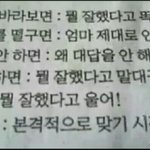 바라보면 : 뭘 잘했다고 똑
떨구면 : 엄마 제대로 안
안 하면 : 왜 대답을 안 해
하면 : 뭘 잘했다고 말대구
뭘 잘했다고 울어!
: 본격적으로 맞기 시